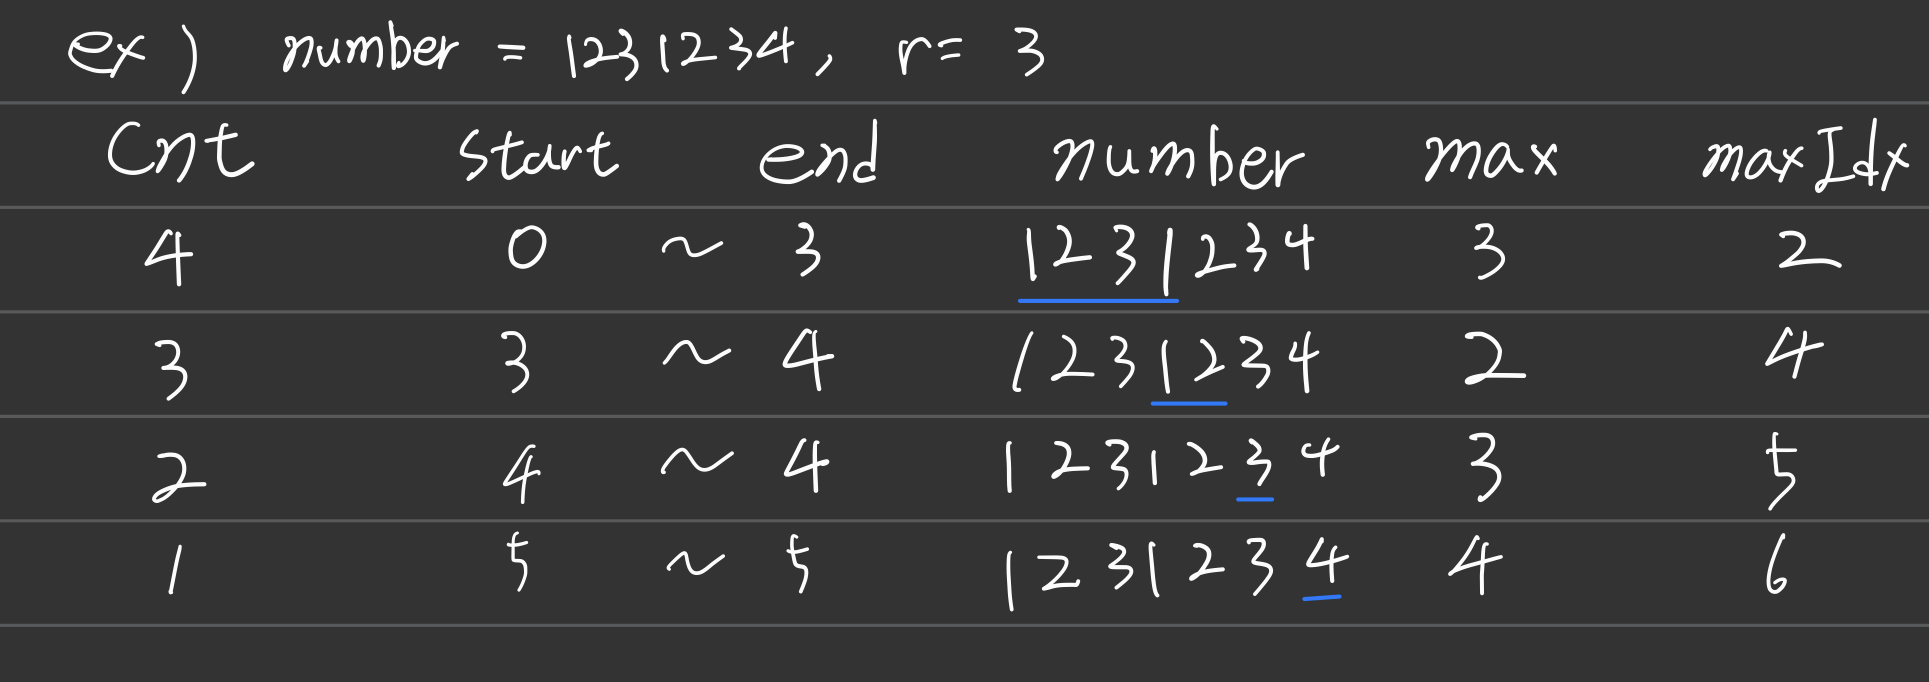 ex) number = 1231234, r= 3
Cnt start end number max maxIdx
4 0 ~ 3 1231234 3 2
3 3 ~ 4 1231234 2 4
2 4 ~ 4 1231234 3 5
1 5 ~ 5 1231234 4 6